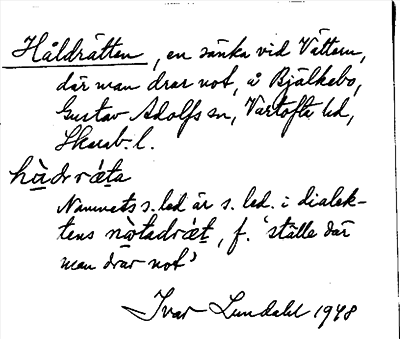 Håldrätten, en sänka vid Vättern,
där man drar not, å Bjälkebo,
Gustav Adolfs sn, Vartofta hd,
Skarab. l.
hàdrǽta
Namnets s. led är s. led. i dialek-
tens nòtadrǽt, f. 'ställe där
man drar not'
Ivar Lundahl 1948